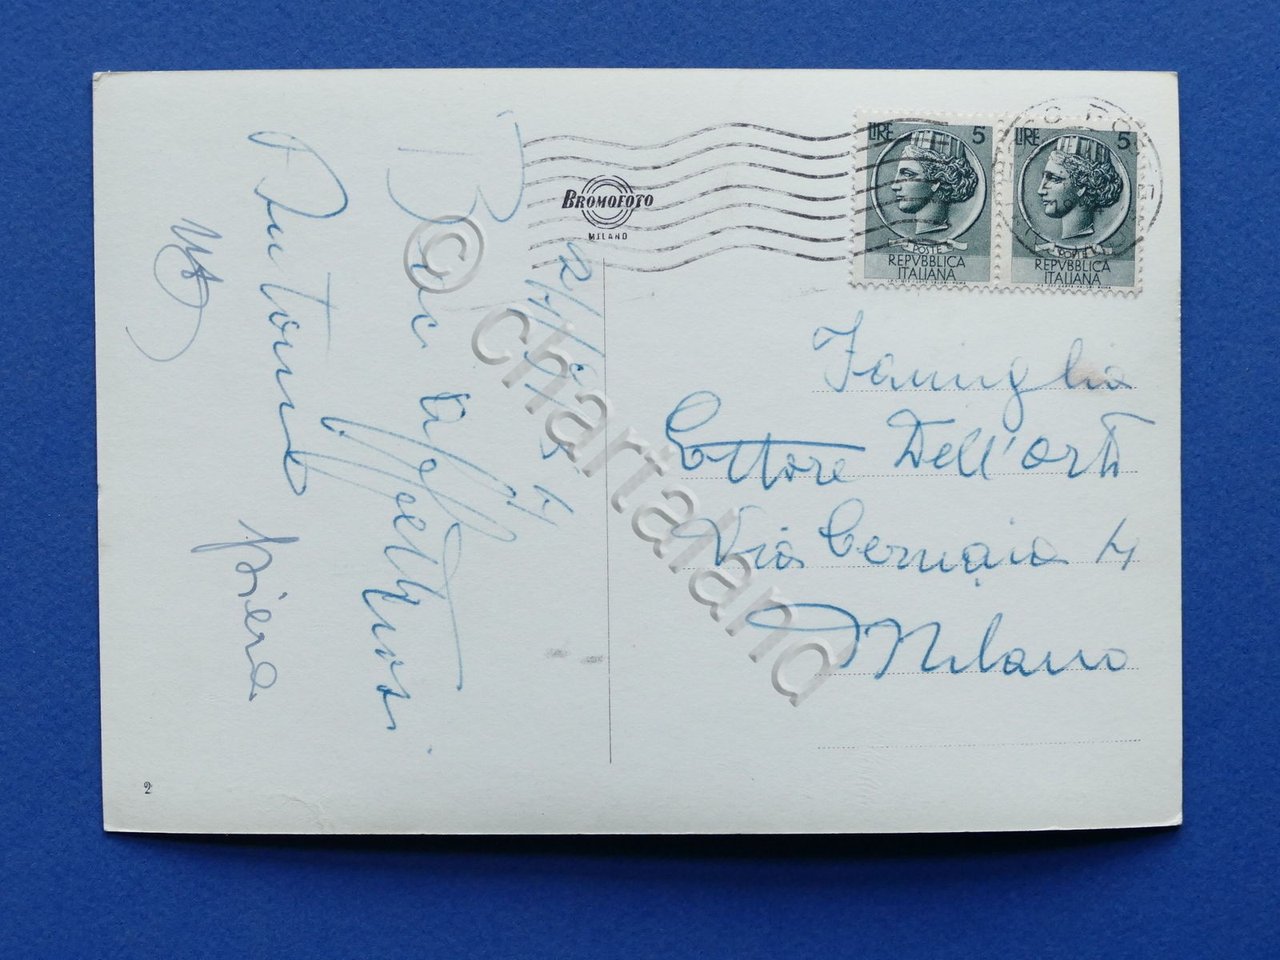 Baci affettuosi
Antonio
Piera
BROMOFOTO
MILANO
LIRE 5
POSTE
REPVBBLICA
ITALIANA
LIRE 5
POSTE
REPVBBLICA
ITALIANA
Famiglia
Ettore Dell'Orto
Via Cernaia 4
Milano
2
© chartaland